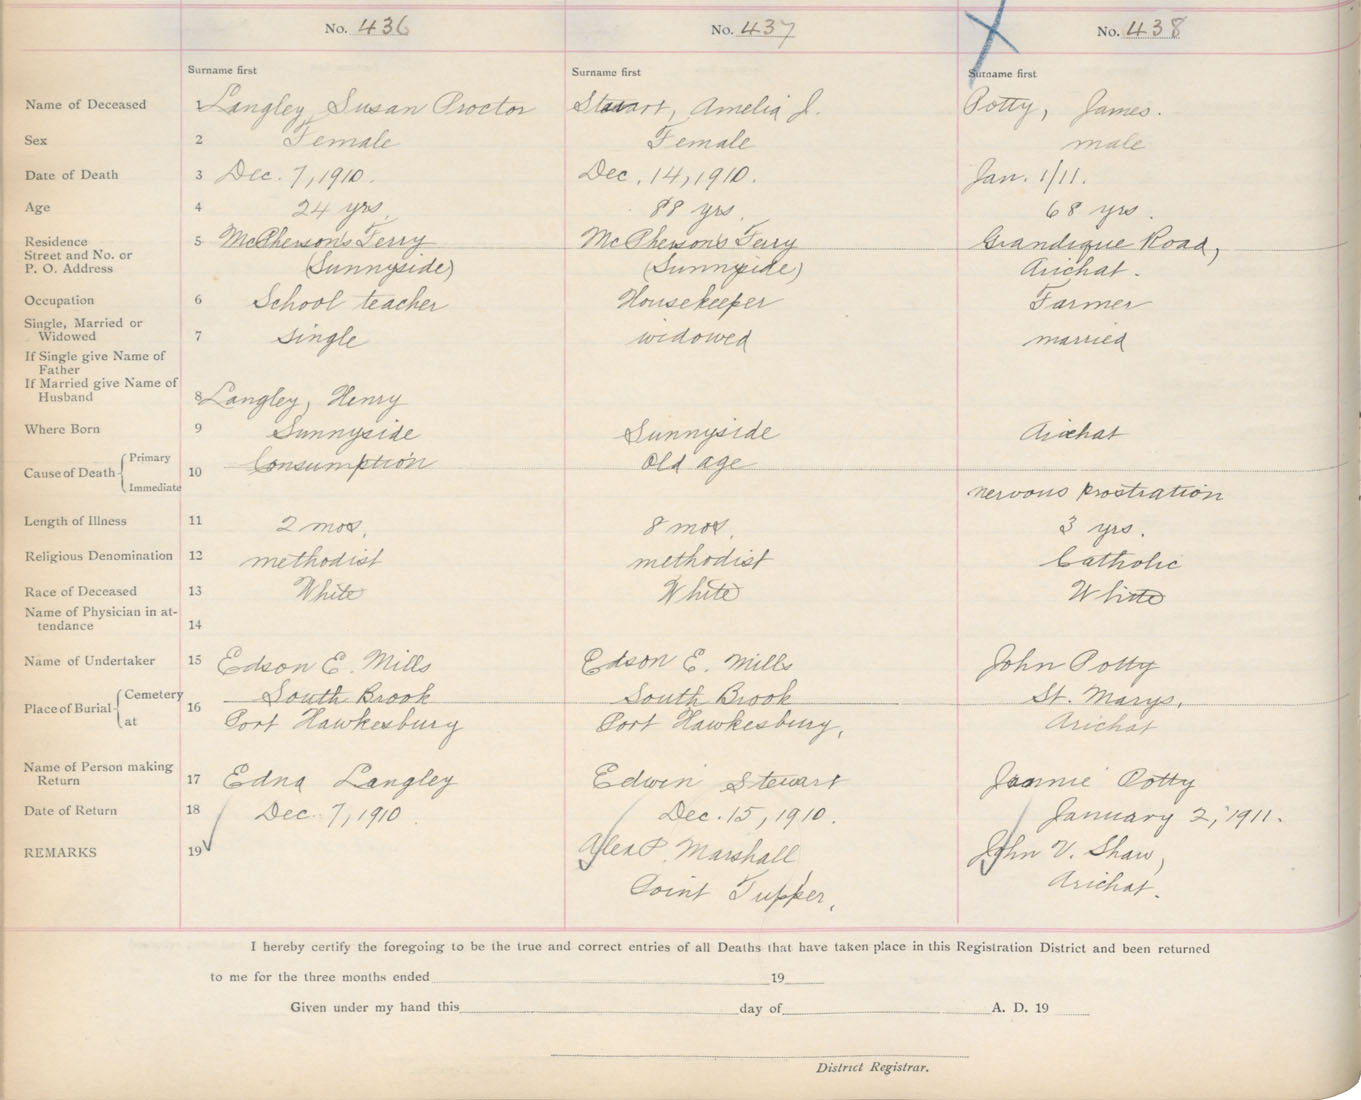 No. 436 No. 437 No. 438
Surname first Surname first Surname first
Name of Deceased 1 Langley, Susan Proctor Stewart, Amelia J. Potty, James.
Sex 2 Female Female male
Date of Death 3 Dec. 7, 1910. Dec. 14, 1910. Jan. 1/11.
Age 4 24 yrs. 88 yrs. 68 yrs.
Residence 5 McPherson's Ferry McPherson's Ferry Grandique Road,
Street and No. or
P. O. Address (Sunnyside) (Sunnyside) Arichat.
Occupation 6 School teacher Housekeeper Farmer
Single, Married or
Widowed 7 single widowed married
If Single give Name of
Father
If Married give Name of
Husband 8 Langley, Henry
Where Born 9 Sunnyside Sunnyside Arichat
Cause of Death Primary 10 Consumption Old age
Immediate nervous prostration
Length of Illness 11 2 mos. 8 mos. 3 yrs.
Religious Denomination 12 methodist methodist Catholic
Race of Deceased 13 White White White
Name of Physician in at-
tendance 14
Name of Undertaker 15 Edson E. Mills Edson E. Mills John Potty
Place of Burial Cemetery 16 South Brook South Brook St. Marys,
at Port Hawkesbury Port Hawkesbury, Arichat
Name of Person making
Return 17 Edna Langley Edwin Stewart Jennie Potty
Date of Return 18 Dec. 7, 1910. Dec. 15, 1910. January 2, 1911.
REMARKS 19 Alex P. Marshall John V. Shaw,
Point Tupper, Arichat.
I hereby certify the foregoing to be the true and correct entries of all Deaths that have taken place in this Registration District and been returned
to me for the three months ended 19
Given under my hand this day of A. D. 19
District Registrar.